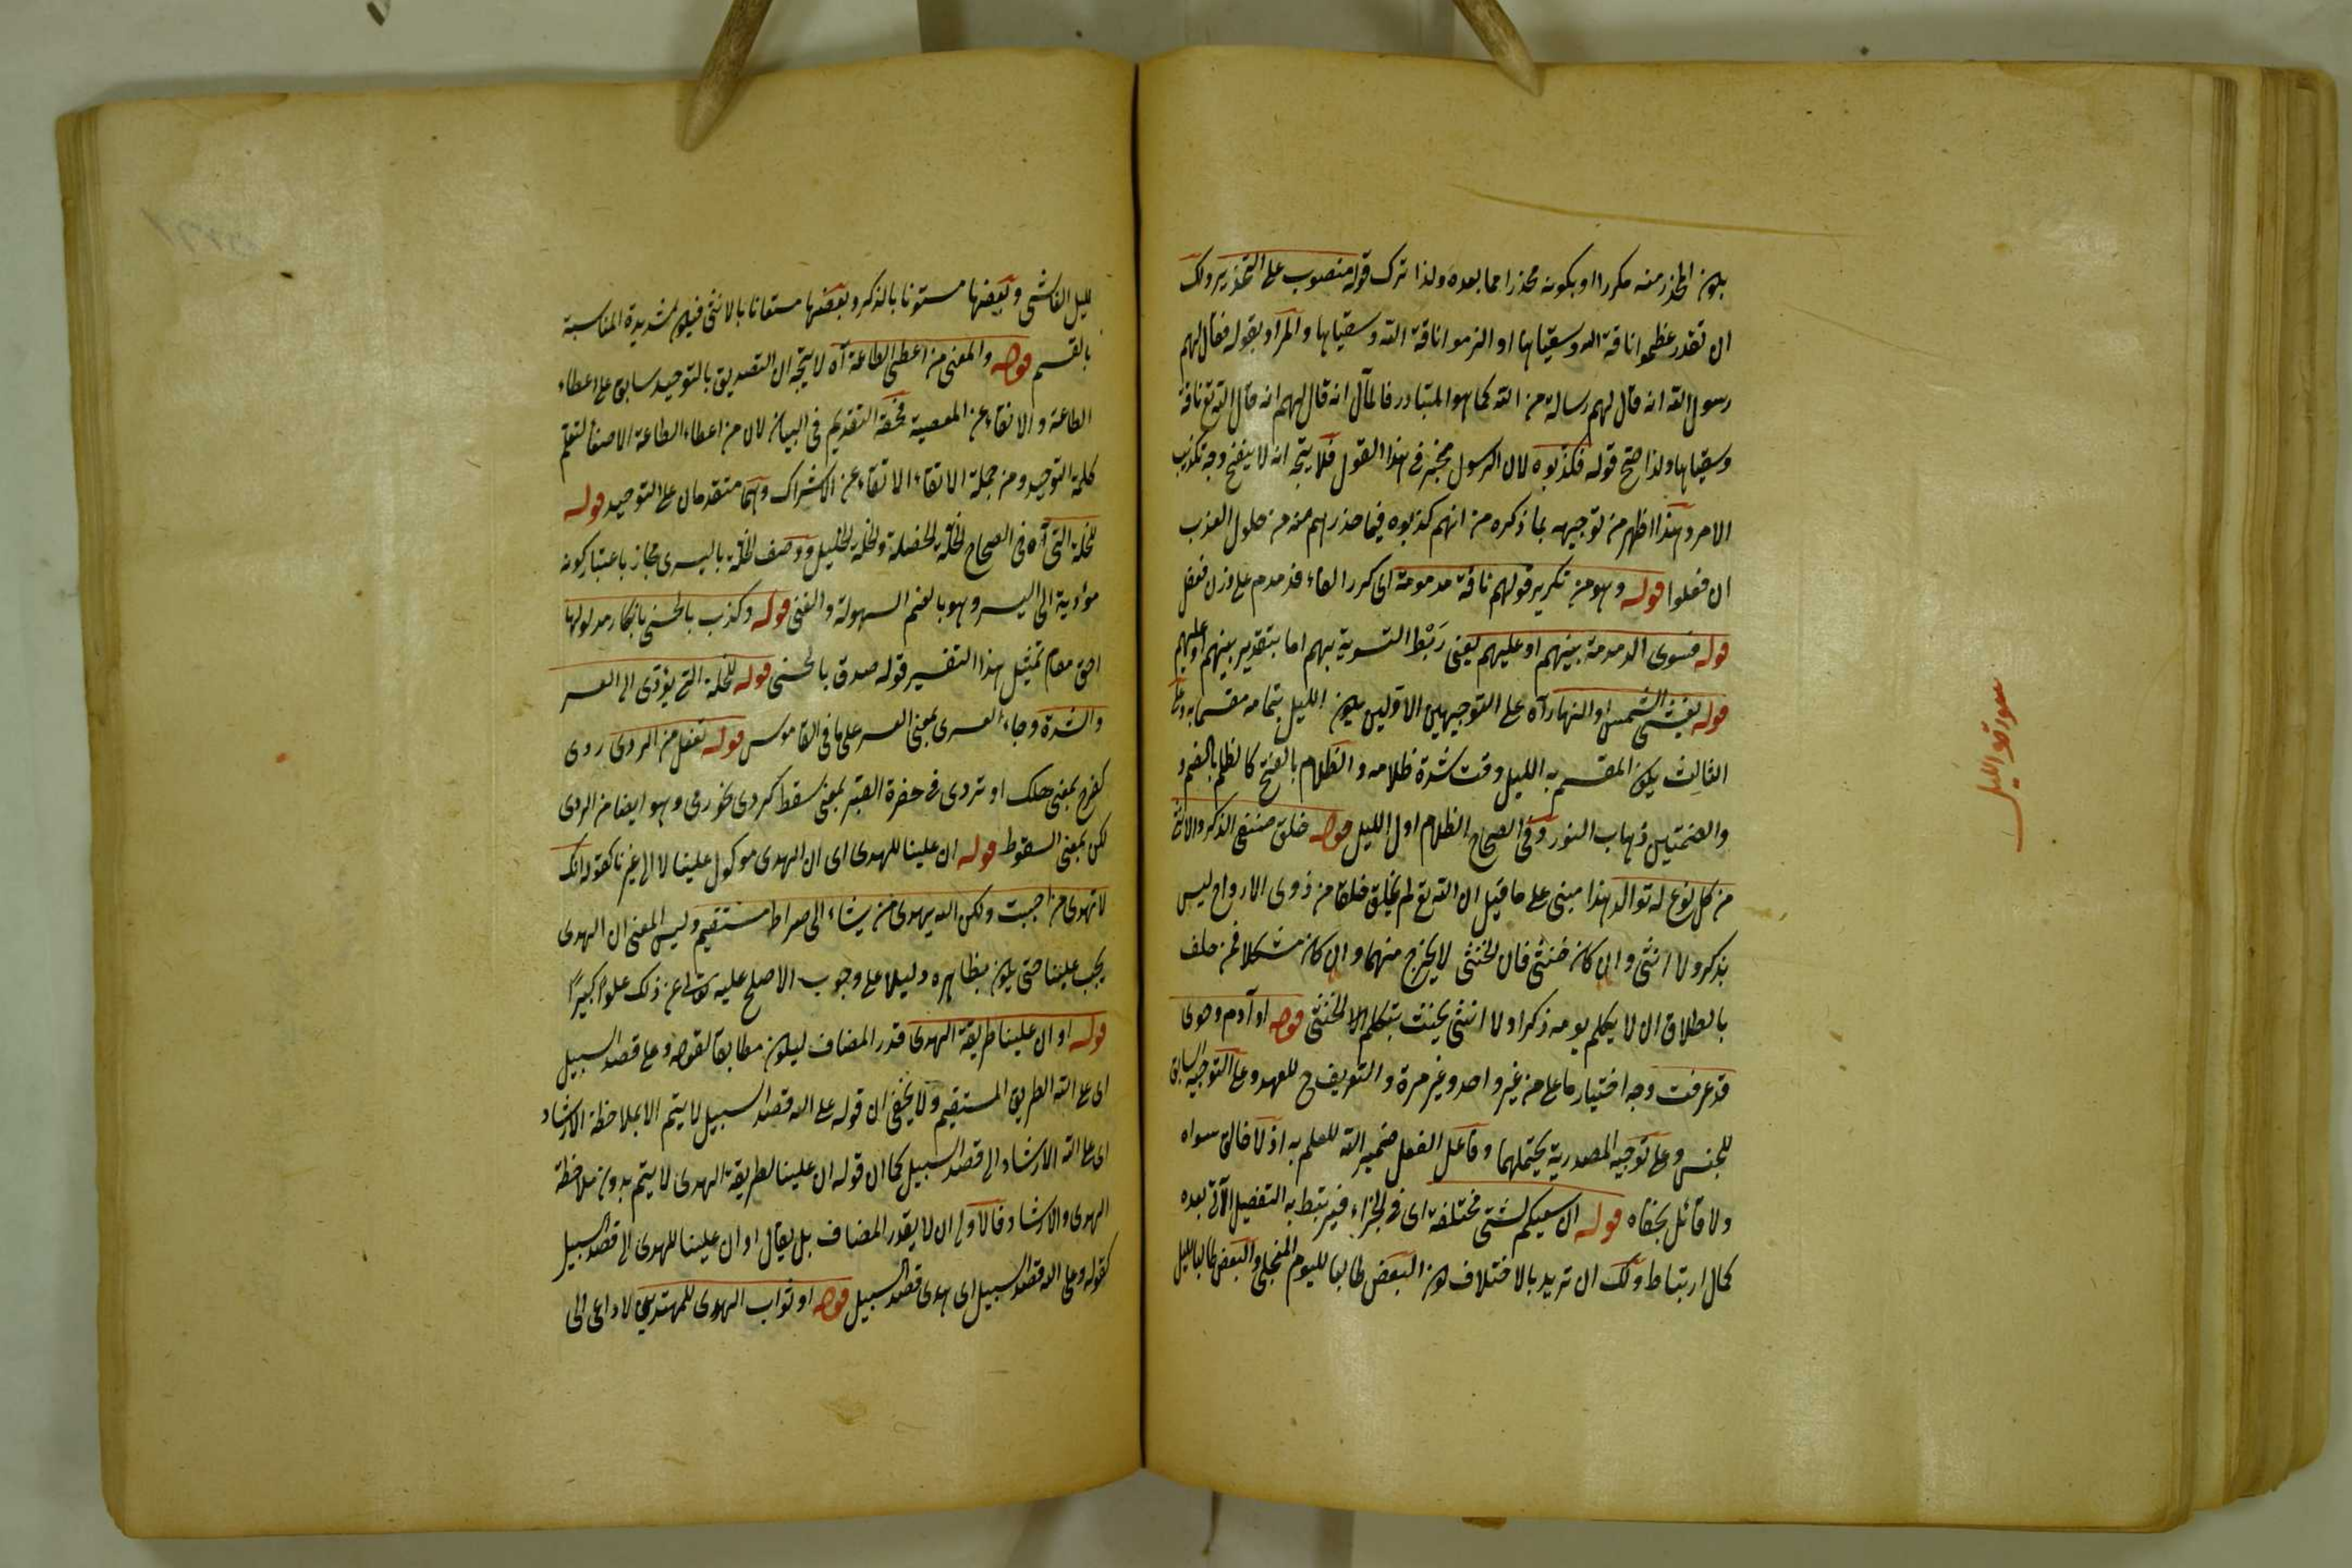 يكون المحذر منه مكررا او بكونه محذرا مما بعده ولذا ترك قوله منصوب على التحذير ولك
ان تقدر عظموا ناقة الله وسقياها او الزموا ناقة الله وسقياها والمراد بقوله فقال لهم
رسول الله انه قال لهم رسالة من الله كما هو المتبادر فالمآل انه قال لهم انه قال الله تع ناقة
وسقياها ولذا صح قوله فكذبوه لان الرسول مخبر في هذا القول فلا يتجه انه لا يتضح وجه تكذيب
الامر وهذا اظهر من توجيهه بما ذكره من انهم كذبوه فيما حذرهم منه من حلول العذاب
ان فعلوا قوله وهو من تكرير قولهم ناقة مدمومة اى كرر الفاء فدمدم على وزن فعفل
قوله فسوى الدمدمة بينهم او عليهم يعنى رَبْط التسوية بهم اما بتقدير بينهم او عليهم
قوله يغشى الشمس او النهار آه على التوجيهين الاولين يكون الليل بتمامه مقسما به وعلى
الثالث يكون المقسم به الليل وقت شدة ظلامه والظلام بالفتح كالظلم بالضم و
والضمتين ذهاب النور وفى الصحاح الظلام اول الليل قوله خلق صنفى الذكر والانثى
من كل نوع له توالد هذا مبنى على ما قيل ان الله تع لم يخلق خلقا من ذوى الارواح ليس
بذكر ولا انثى وان كان خنثى فان الخنثى لا يخرج منهما وان كان مشكلا فمن حلف
بالطلاق ان لا يكلم يومه ذكرا ولا انثى يحنث بتكلم الخنثى قوله او آدم وحوى
قد عرفت وجه اختيار ما على من غير واحد وغير مرة والتعريف ح للعهد وعلى التوجيه السابق
للجنس وعلى توجيه المصدرية يحتملهما وفاعل الفعل ضمير الله للعلم به اذ لا خالق سواه
ولا قائل بخفاه قوله ان سعيكم لشتى مختلفة اى فى الجزاء فيرتبط به التفصيل الآتى بعده
كمال ارتباط ولك ان تريد بالاختلاف كون البعض طالبا لليوم المنجلى والبعض طالبا لليل
سورة والليل
لليل الغاشى وبعضها مستعونا بالذكر وبعضها مستعانا بالانثى فيكون شديدة المناسبة
بالقسم قوله والمعنى من اعطى الطاعة آه لا يتجه ان التصديق بالتوحيد سابق على اعطاء
الطاعة والاتقاء عن المعصية فحقه التقديم فى البيان لان من اعطاء الطاعة الاصغاء لتعلم
كلمة التوحيد ومن جملة الاتقاء الاتقاء عن الاشراك وهما متقدمان على التوحيد قوله
للخلة التى آه فى الصحاح الخلّة الخصلة والخلة الخليل ووصف الخلة باليسرى مجاز باعتبار كونه
مؤدية الى اليسر وهو بالضم السهولة والغنى قوله وكذب بالحسنى بانكار مدلولها
احق مقام تمثيل هذا التفسير قوله صدق بالحسنى قوله للخلة التى يؤدى الى العسر
والشدة وجاء العسرى بمعنى العسر على ما فى القاموس قوله تفعل من الردى ردى
كفرح بمعنى هلك او تردى فى حفرة القبر بمعنى سقط كردى نحو رمى وهو ايضا من الردى
لكن بمعنى السقوط قوله ان علينا للهدى اى ان الهدى موكول علينا لا الى غيرنا كقوله انك
لا تهدى من احببت ولكن الله يهدى من يشاء الى صراط مستقيم وليس المعنى ان الهدى
يجب علينا حتى يكون بظاهره دليلا على وجوب الاصلح عليه تعالى عن ذلك علوا كبيرًا
قوله او ان علينا طريقة الهدى قدر المضاف ليكون مطابقا لقوله وعلى قصد السبيل
اى على الله الطريق المستقيم ولا يخفى ان قوله على الله قصد السبيل لا يتم الا بملاحظة الارشاد
اى على الله الارشاد الى قصد السبيل كما ان قوله ان علينا لطريقة الهدى لا يتم بدون ملاحظة
الهدى والارشاد فالاولى ان لا يقدر المضاف بل يقال او ان علينا للهدى الى قصد السبيل
كقوله وعلى الله قصد السبيل اى هدى قصد السبيل قوله او ثواب الهدى للمهتدين لا داعى الى